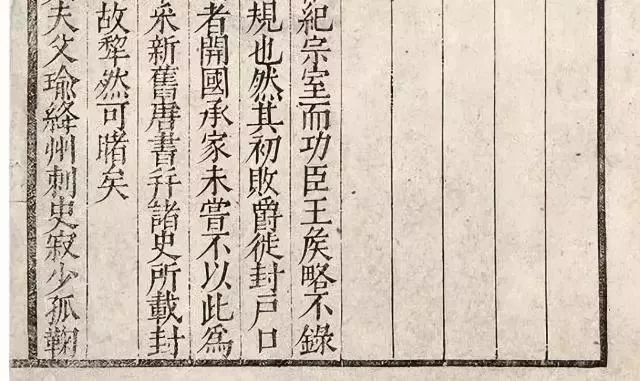 紀宗室而功臣王矦略不錄
規也然其初敗爵徙封戸口
者開國承家未嘗不以此爲
采新舊唐書幷諸史所載封
故犂然可睹矣
夫父瑜絳州刺史寂少孤鞠